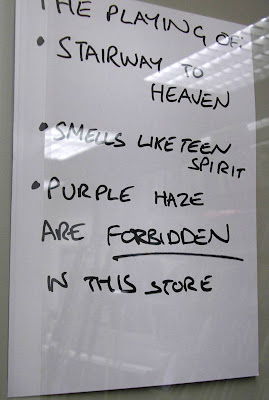 THE PLAYING OF:
• STAIRWAY TO
HEAVEN
• SMELLS LIKE TEEN
SPIRIT
• PURPLE HAZE
ARE FORBIDDEN
IN THIS STORE